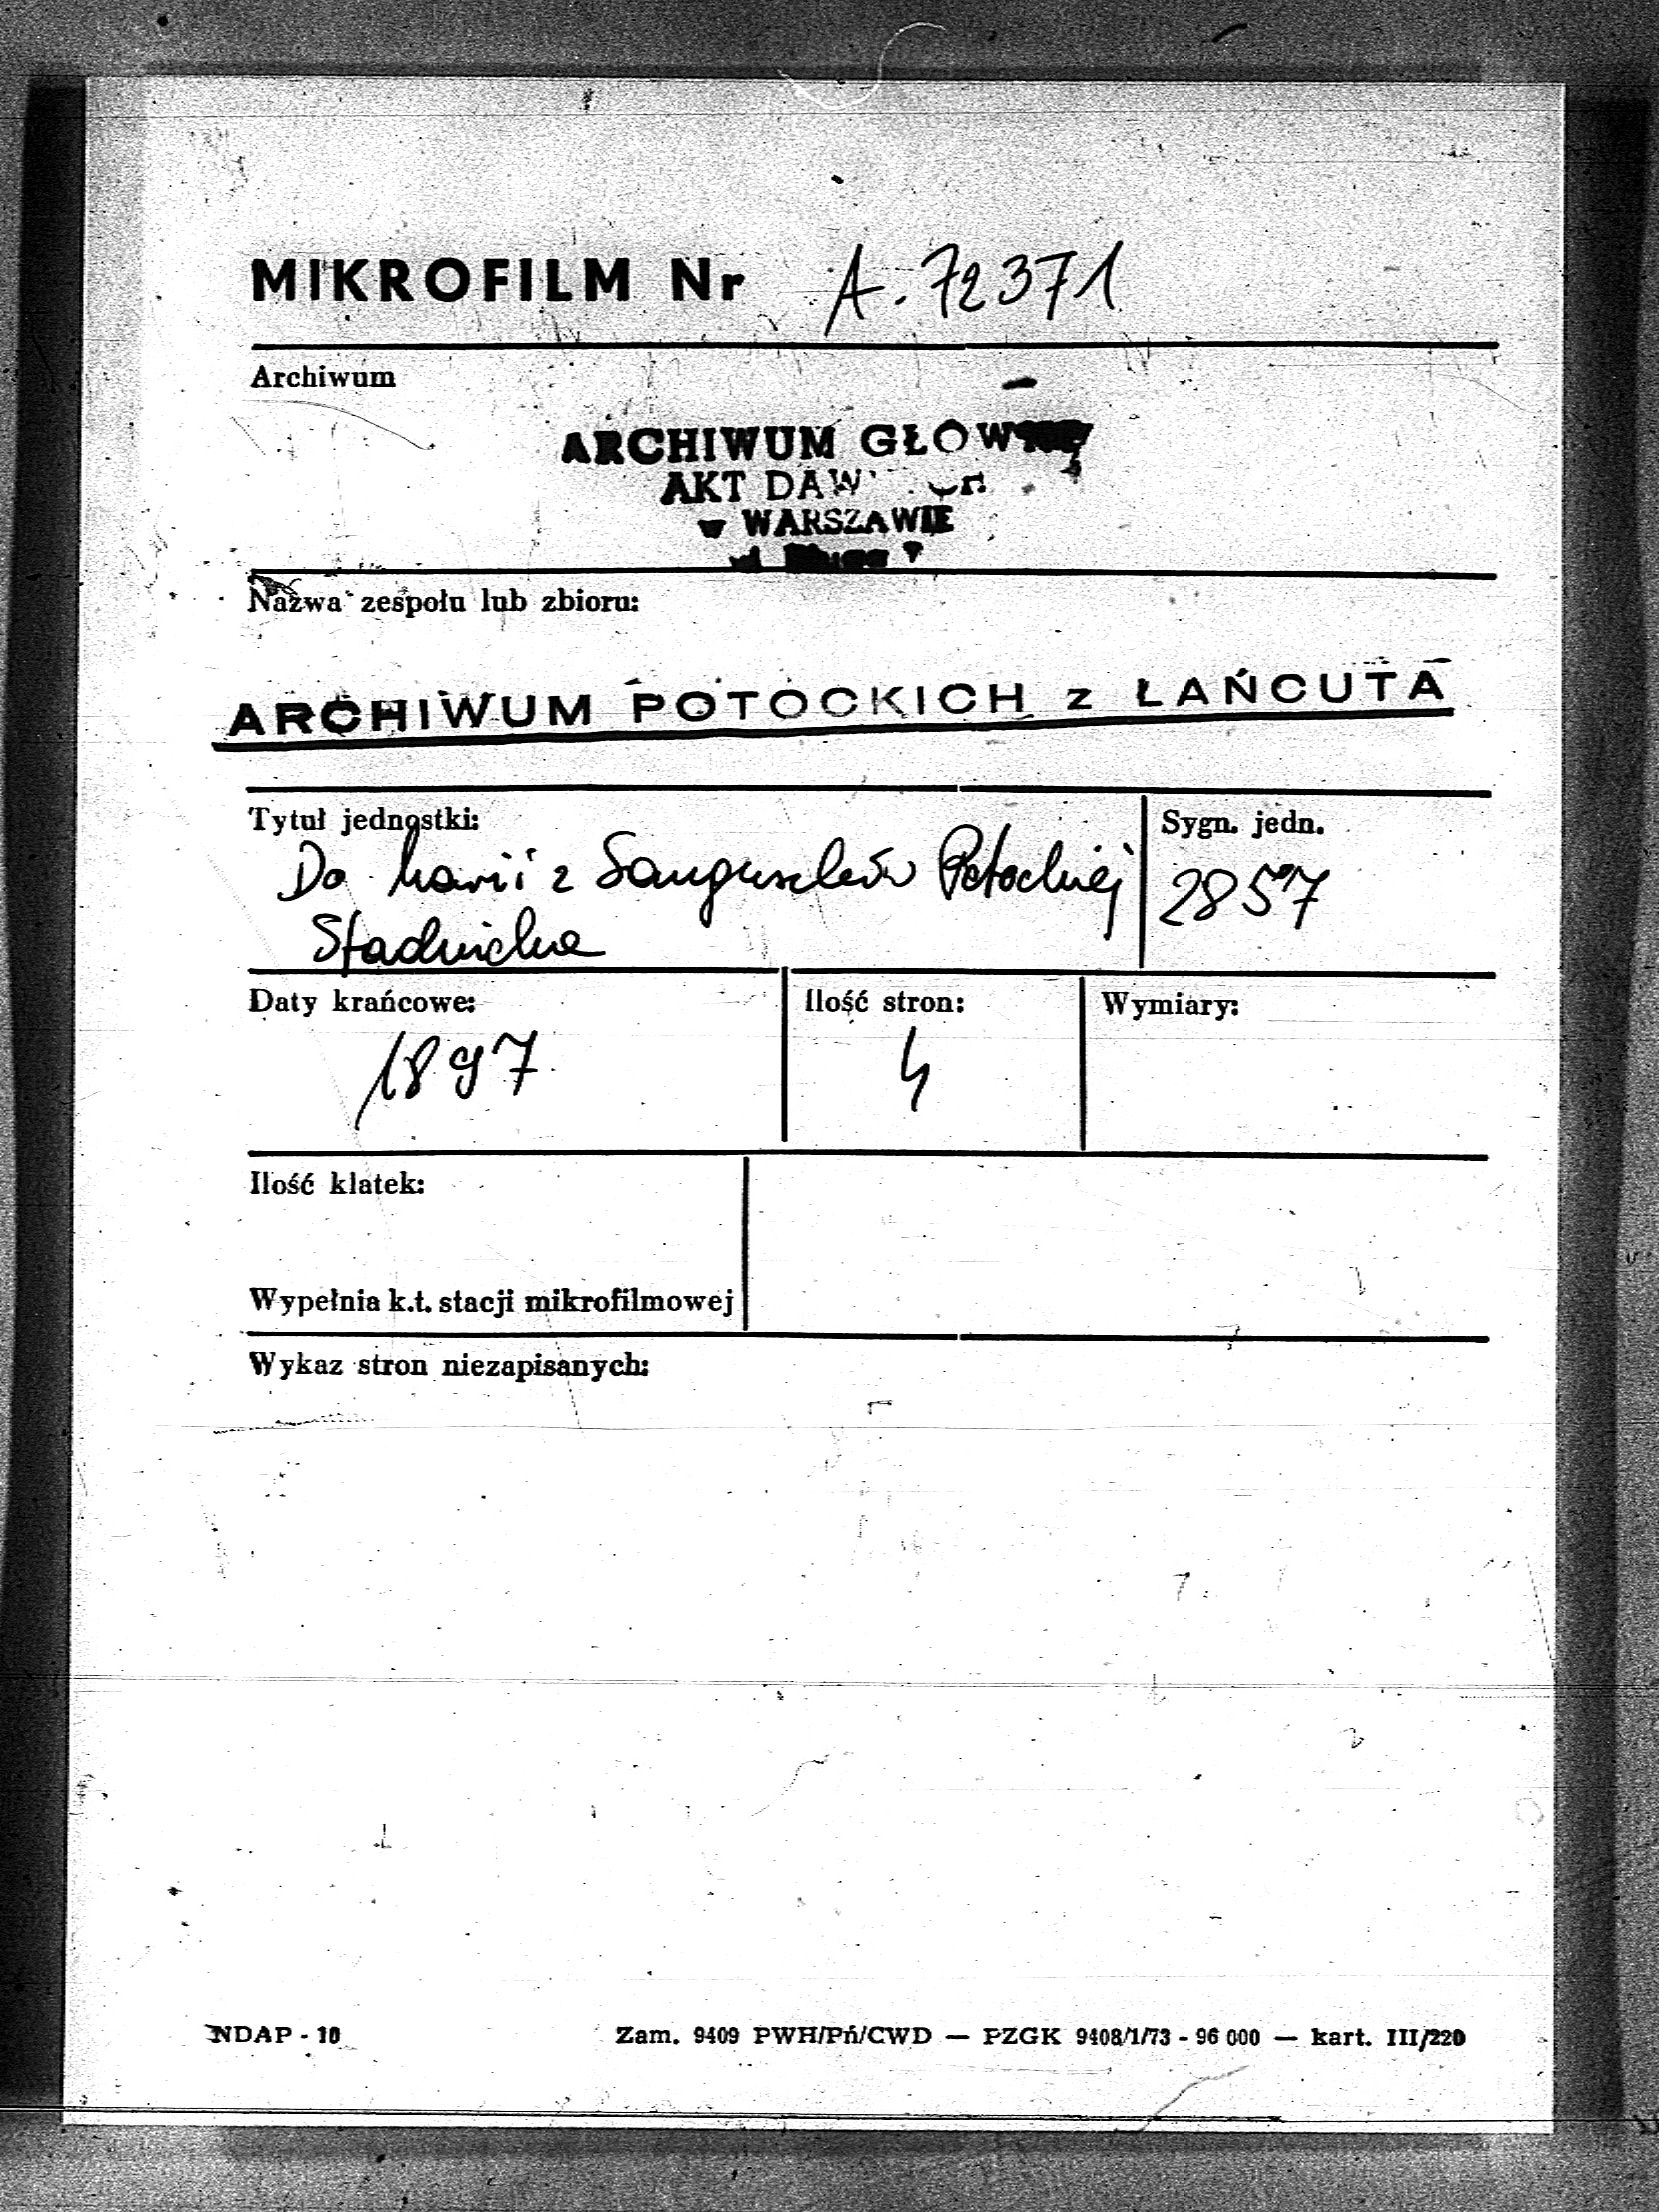 MIKROFILM Nr A. 72371
Archiwum
ARCHIWUM GŁÓWNE
AKT DAWNYCH
w WARSZAWIE
ul Długa 7
Nazwa zespołu lub zbioru:
ARCHIWUM POTOCKICH z ŁAŃCUTA
Tytuł jednostki:
Do Marii z Sanguszków Potockiej
Stadnicka
Sygn. jedn.
2857
Daty krańcowe:
1897
Ilość stron:
4
Wymiary:
Ilość klatek:
Wypełnia k.t. stacji mikrofilmowej
Wykaz stron niezapisanych:
NDAP - 10
Zam. 9409 PWH/Pń/CWD — PZGK 9408/1/73 - 96 000 — kart. III/220